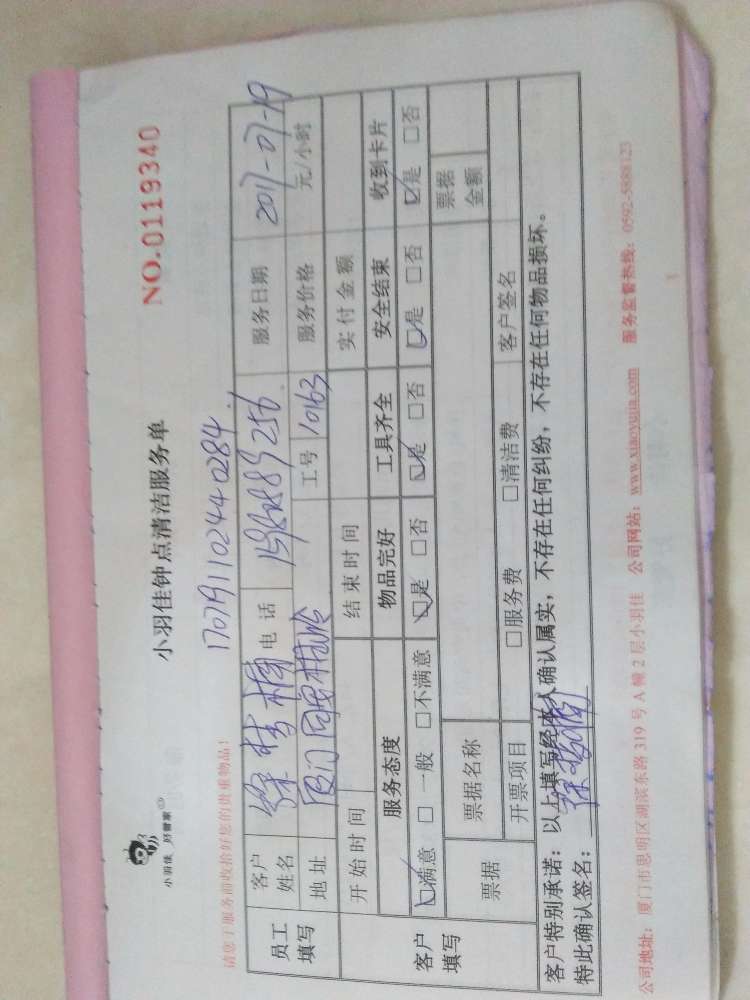 小羽佳 好管家
小羽佳钟点清洁服务单
NO.0119340
请您于服务前收拾好您的贵重物品!
170719110244 0284
员工填写 客户姓名 电话 服务日期 2017-07-19
地址 工号 10163 服务价格 元/小时
客户填写 开始时间 结束时间 实付金额
服务态度 物品完好 工具齐全 安全结束 收到卡片
☑满意 □一般 □不满意 ☑是 □否 ☑是 □否 ☑是 □否 ☑是 □否
票据 票据名称 票据金额
开票项目 □服务费 □清洁费 客户签名
客户特别承诺:以上填写经本人确认属实,不存在任何纠纷,不存在任何物品损坏。
特此确认签名:
公司地址:厦门市思明区湖滨东路319号A幢2层小羽佳 公司网站:www.xiaoyujia.com 服务监督热线:0592-5888123